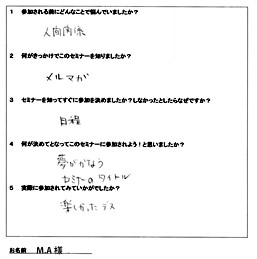 1 参加される前にどんなことで悩んでいましたか？
人間関係
2 何がきっかけでこのセミナーを知りましたか？
メルマガ
3 セミナーを知ってすぐに参加を決めましたか？しなかったとしたらなぜですか？
日程
4 何が決めてとなってこのセミナーに参加されよう！と思いましたか？
夢がかなう
セミナーのタイトル
5 実際に参加されてみていかがでしたか？
楽しかったデス
お名前 M.A 様